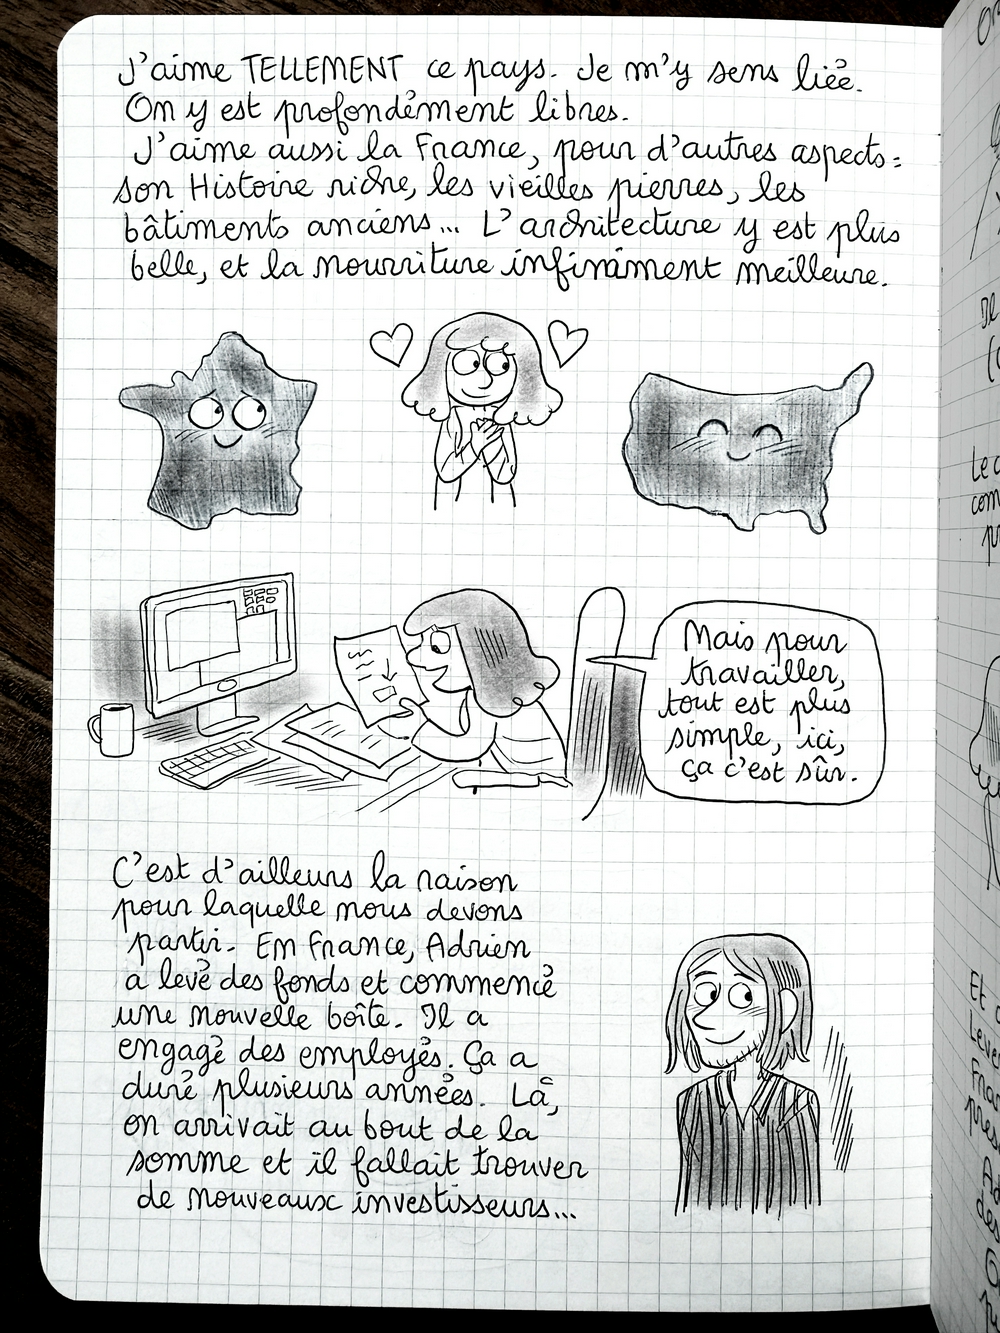 J'aime TELLEMENT ce pays. Je m'y sens liée.
On y est profondément libres.
J'aime aussi la France, pour d'autres aspects :
son Histoire riche, les vieilles pierres, les
bâtiments anciens... L'architecture y est plus
belle, et la nourriture infiniment meilleure.
Mais pour
travailler,
tout est plus
simple, ici,
ça c'est sûr.
C'est d'ailleurs la raison
pour laquelle nous devons
partir. En France, Adrien
a levé des fonds et commencé
une nouvelle boîte. Il a
engagé des employés. Ça a
duré plusieurs années. Là,
on arrivait au bout de la
somme et il fallait trouver
de nouveaux investisseurs...
Il
Le
com
Et
Lever
Fran
pres
des